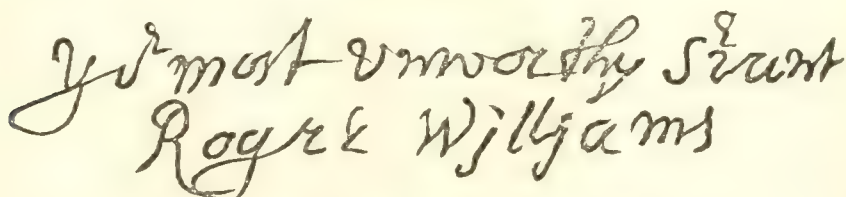 yoʳ most vnworthy Sʳuant
Roger Wjlljams